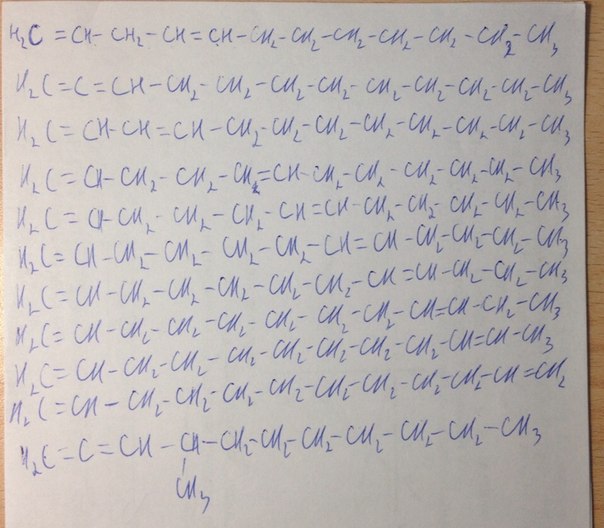 H₂C=CH-CH₂-CH=CH-CH₂-CH₂-CH₂-CH₂-CH₂-CH₂-CH₃
H₂C=C=CH-CH₂-CH₂-CH₂-CH₂-CH₂-CH₂-CH₂-CH₂-CH₃
H₂C=CH-CH=CH-CH₂-CH₂-CH₂-CH₂-CH₂-CH₂-CH₂-CH₃
H₂C=CH-CH₂-CH₂-CH=CH-CH₂-CH₂-CH₂-CH₂-CH₂-CH₃
H₂C=CH-CH₂-CH₂-CH₂-CH=CH-CH₂-CH₂-CH₂-CH₂-CH₃
H₂C=CH-CH₂-CH₂-CH₂-CH₂-CH=CH-CH₂-CH₂-CH₂-CH₃
H₂C=CH-CH₂-CH₂-CH₂-CH₂-CH₂-CH=CH-CH₂-CH₂-CH₃
H₂C=CH-CH₂-CH₂-CH₂-CH₂-CH₂-CH₂-CH=CH-CH₂-CH₃
H₂C=CH-CH₂-CH₂-CH₂-CH₂-CH₂-CH₂-CH₂-CH=CH-CH₃
H₂C=CH-CH₂-CH₂-CH₂-CH₂-CH₂-CH₂-CH₂-CH₂-CH=CH₂
H₂C=C=CH-CH-CH₂-CH₂-CH₂-CH₂-CH₂-CH₂-CH₃
CH₃